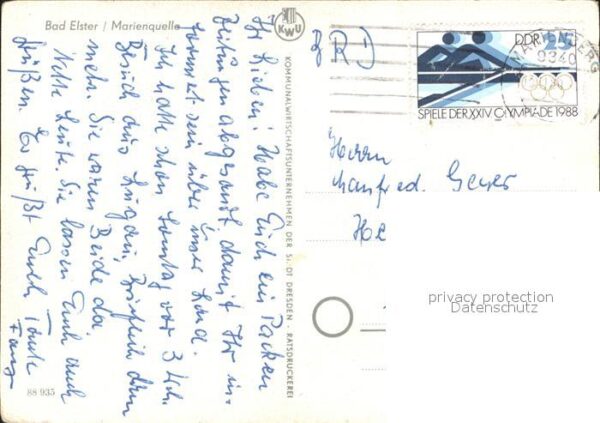 Bad Elster / Marienquelle
KWU
Ihr Lieben! Habe Euch ein Packen
Zeitungen abgesandt, damit Ihr in-
formiert seid über unser Land.
Ich hatte schon Sonntag vor 3 Wch.
Besuch aus Lugau, Brieflich dann
mehr. Sie waren Beide da.
Nette Leute. Sie lassen Euch auch
grüßen Es grüßt Euch Tante
88 935
KOMMUNALWIRTSCHAFTSUNTERNEHMEN DER STADT DRESDEN · RATSDRUCKEREI
BRD
DDR 25
MARIENBERG
9340
SPIELE DER XXIV. OLYMPIADE 1988
Herrn
Manfred Geyer
privacy protection
Datenschutz